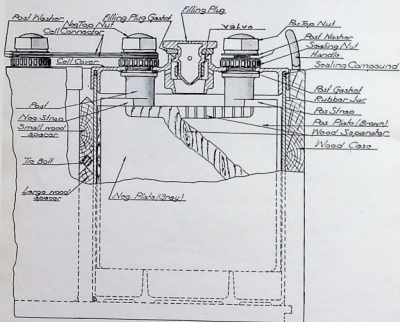 Post Washer
Neg Top Nut
Cell Connector
Cell Cover
Filling Plug Gasket
Filling Plug
Valve
Pos Top Nut
Post Washer
Sealing Nut
Handle
Sealing Compound
Post
Neg Strap
Small wood
spacer
Tie Bolt
Large wood
spacer
Neg Plate (Gray)
Post Gasket
Rubber Jar
Pos Strap
Pos Plate (Brown)
Wood Separator
Wood Case